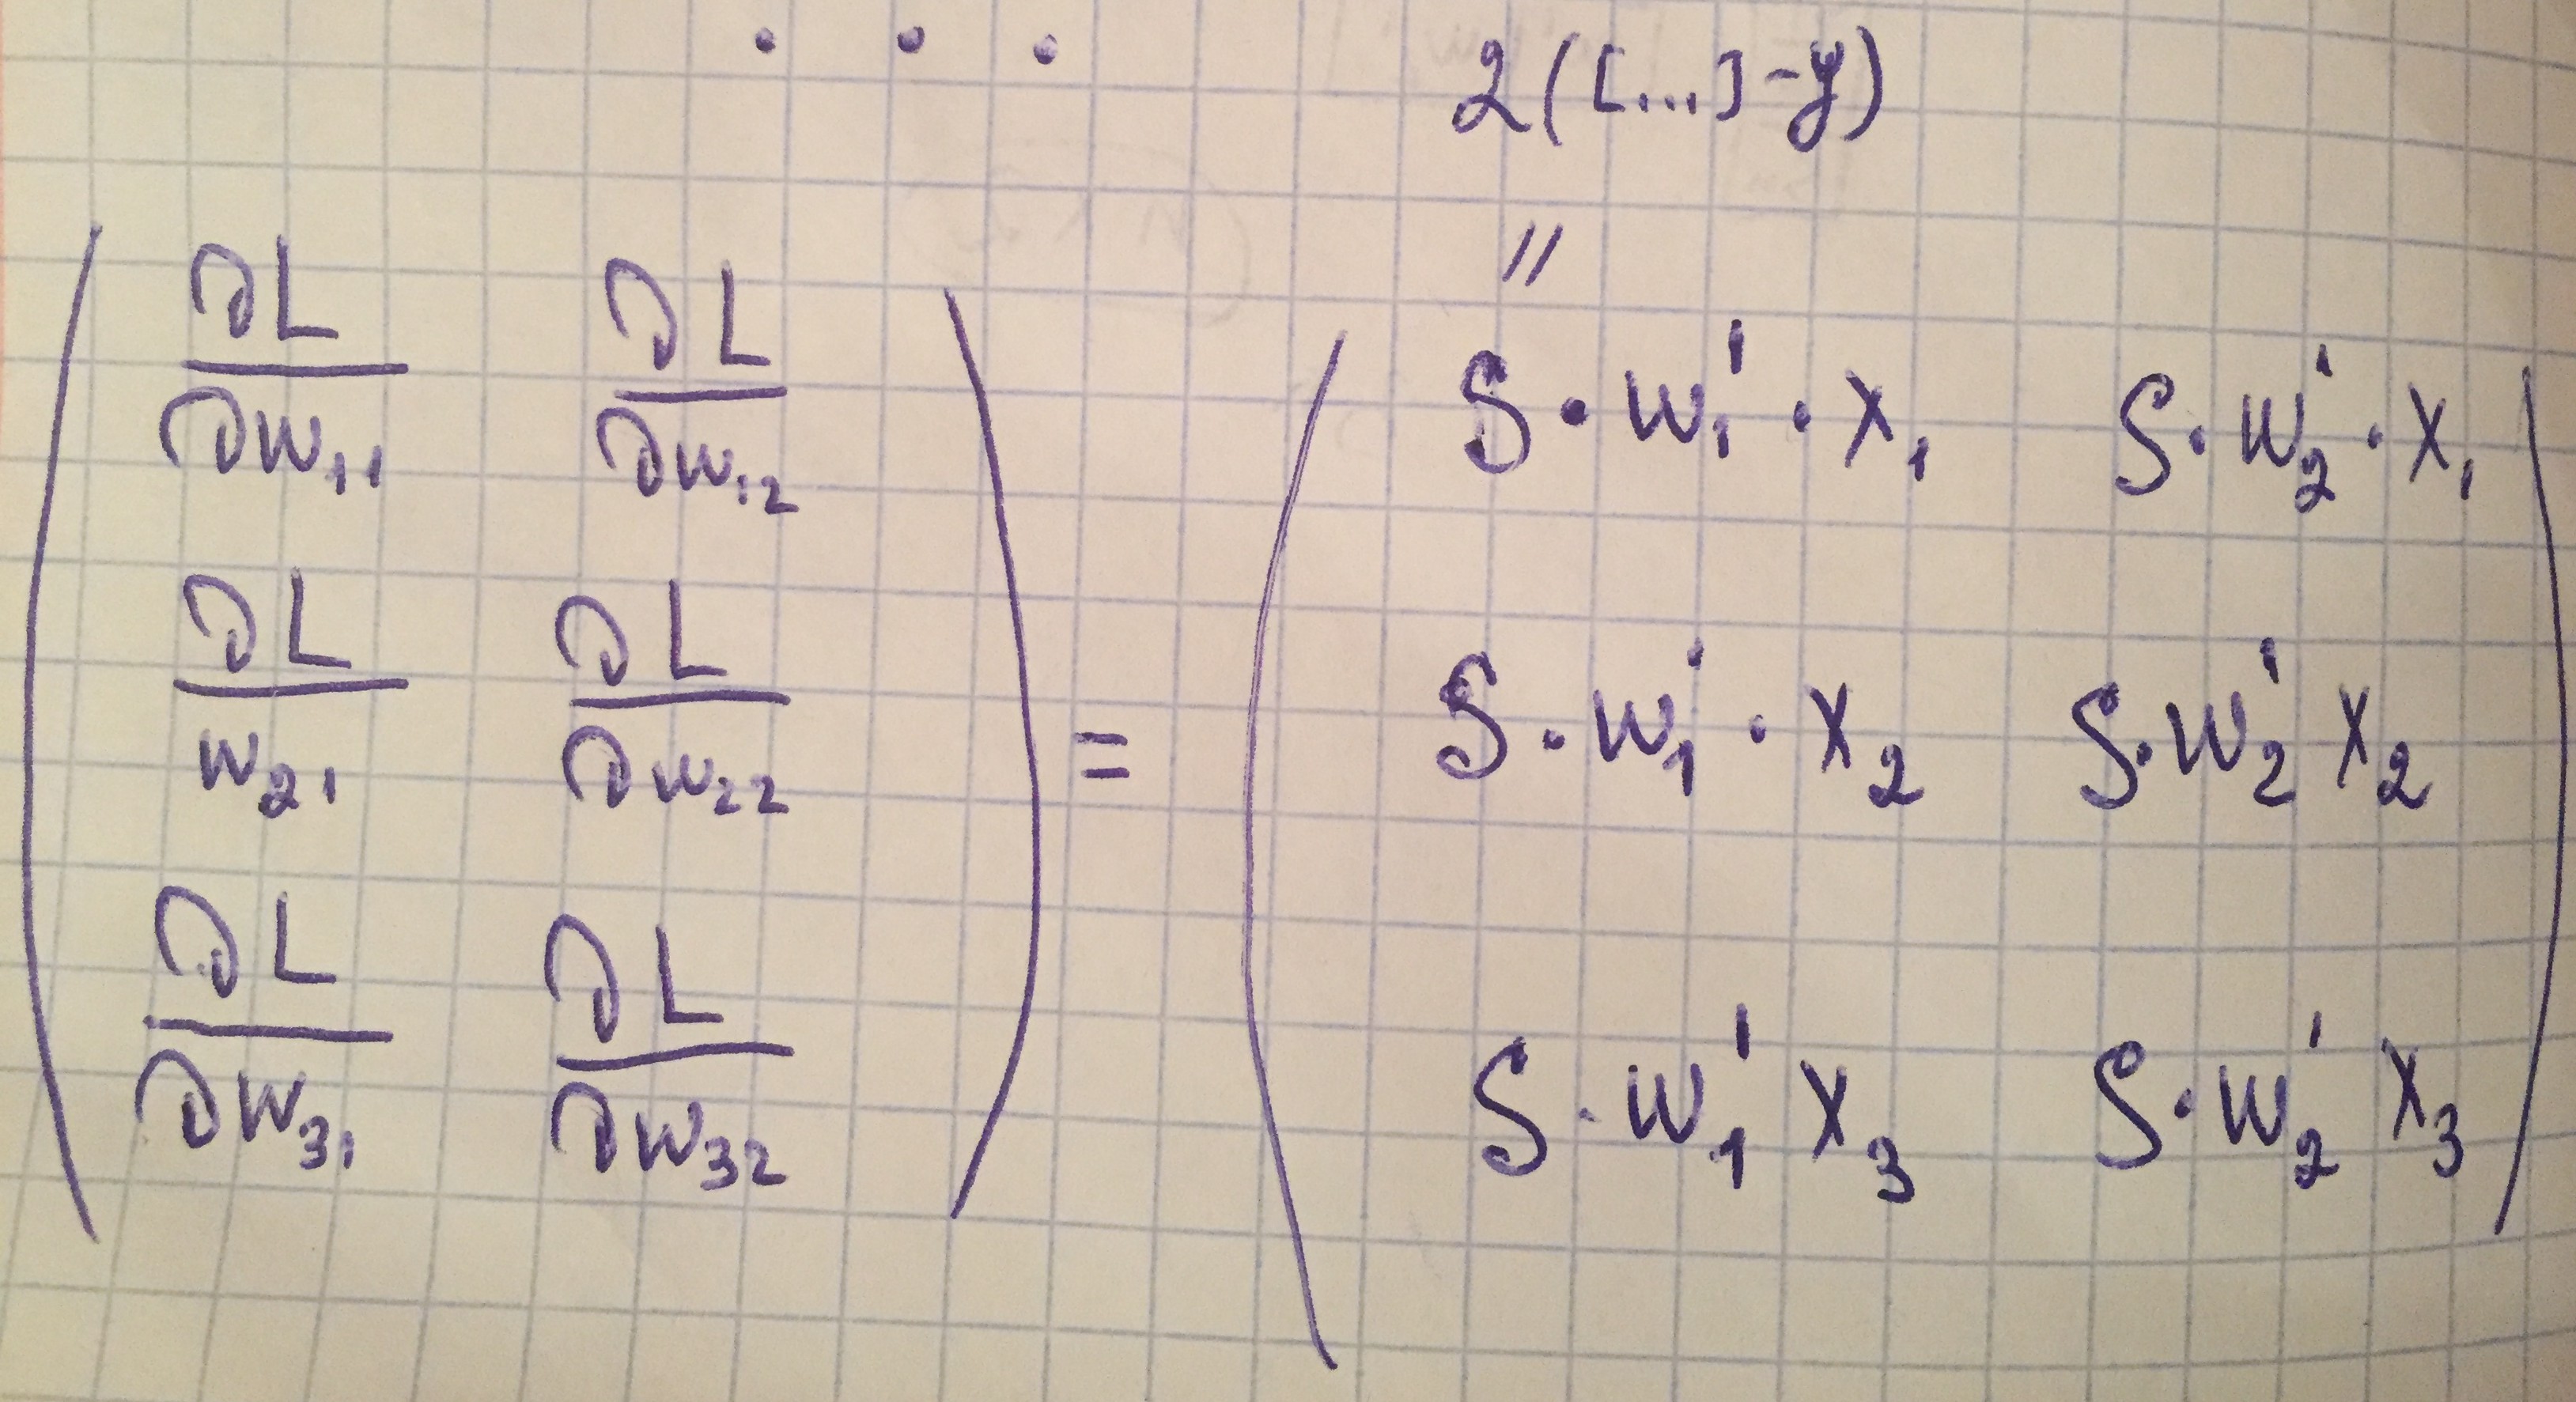 . . .
2([...]-y)
//
∂L/∂w₁₁ ∂L/∂w₁₂
∂L/w₂₁ ∂L/∂w₂₂
∂L/∂w₃₁ ∂L/∂w₃₂
=
S·w₁'·x₁ S·w₂'·x₁
S·w₁'·x₂ S·w₂'x₂
S·w₁'x₃ S·w₂'x₃